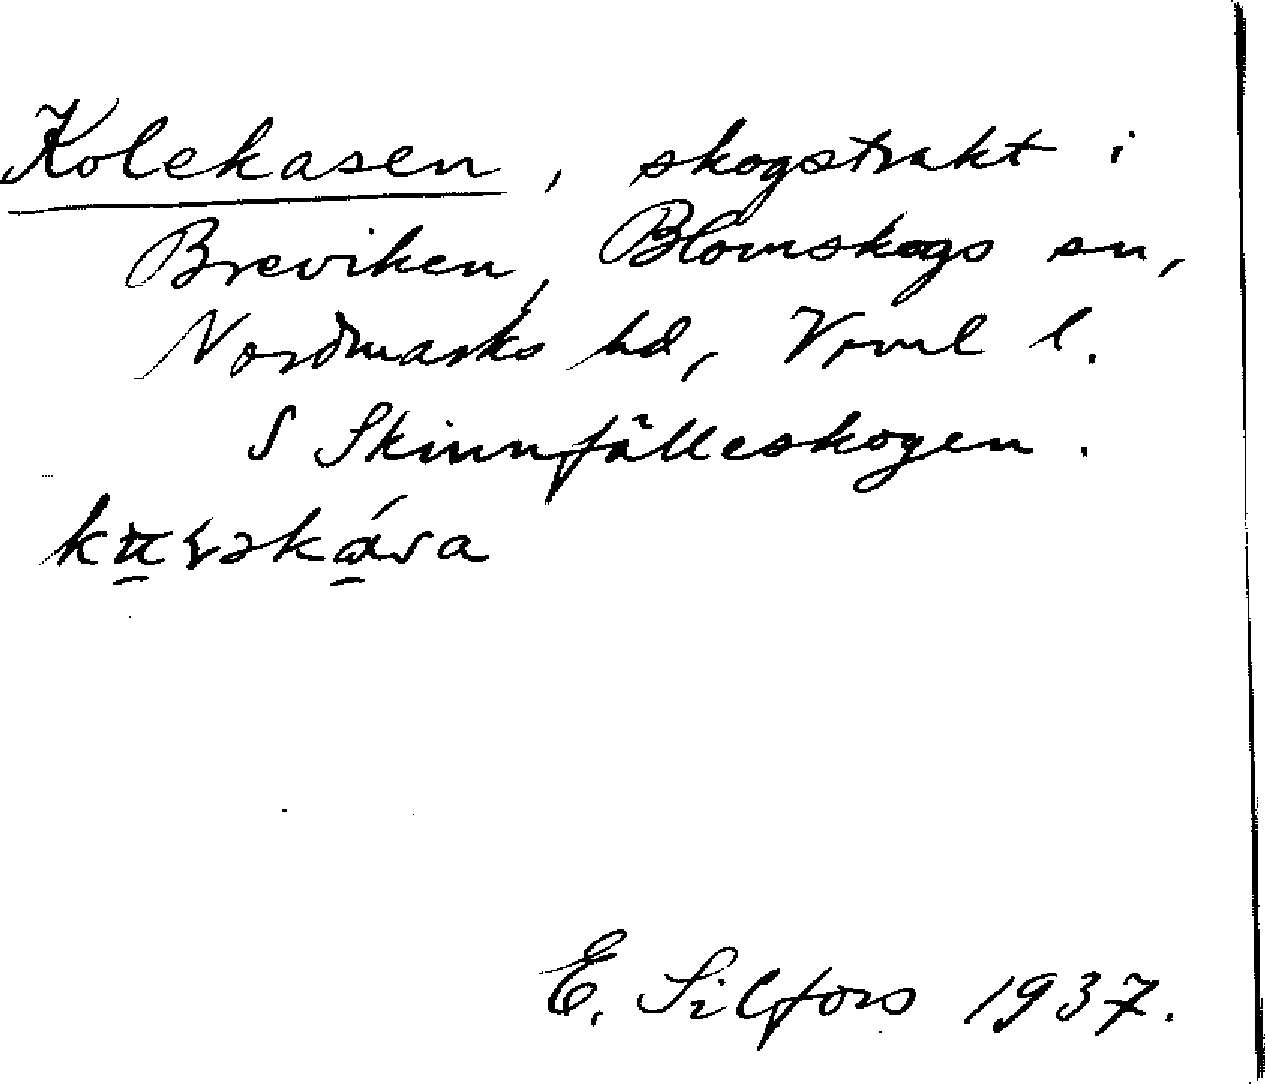 Kolekasen, skogstrakt i
Breviken, Blomskogs sn,
Nordmarks hd, Vrml l.
S Skinnfälleskogen.
E. Silfors 1937.